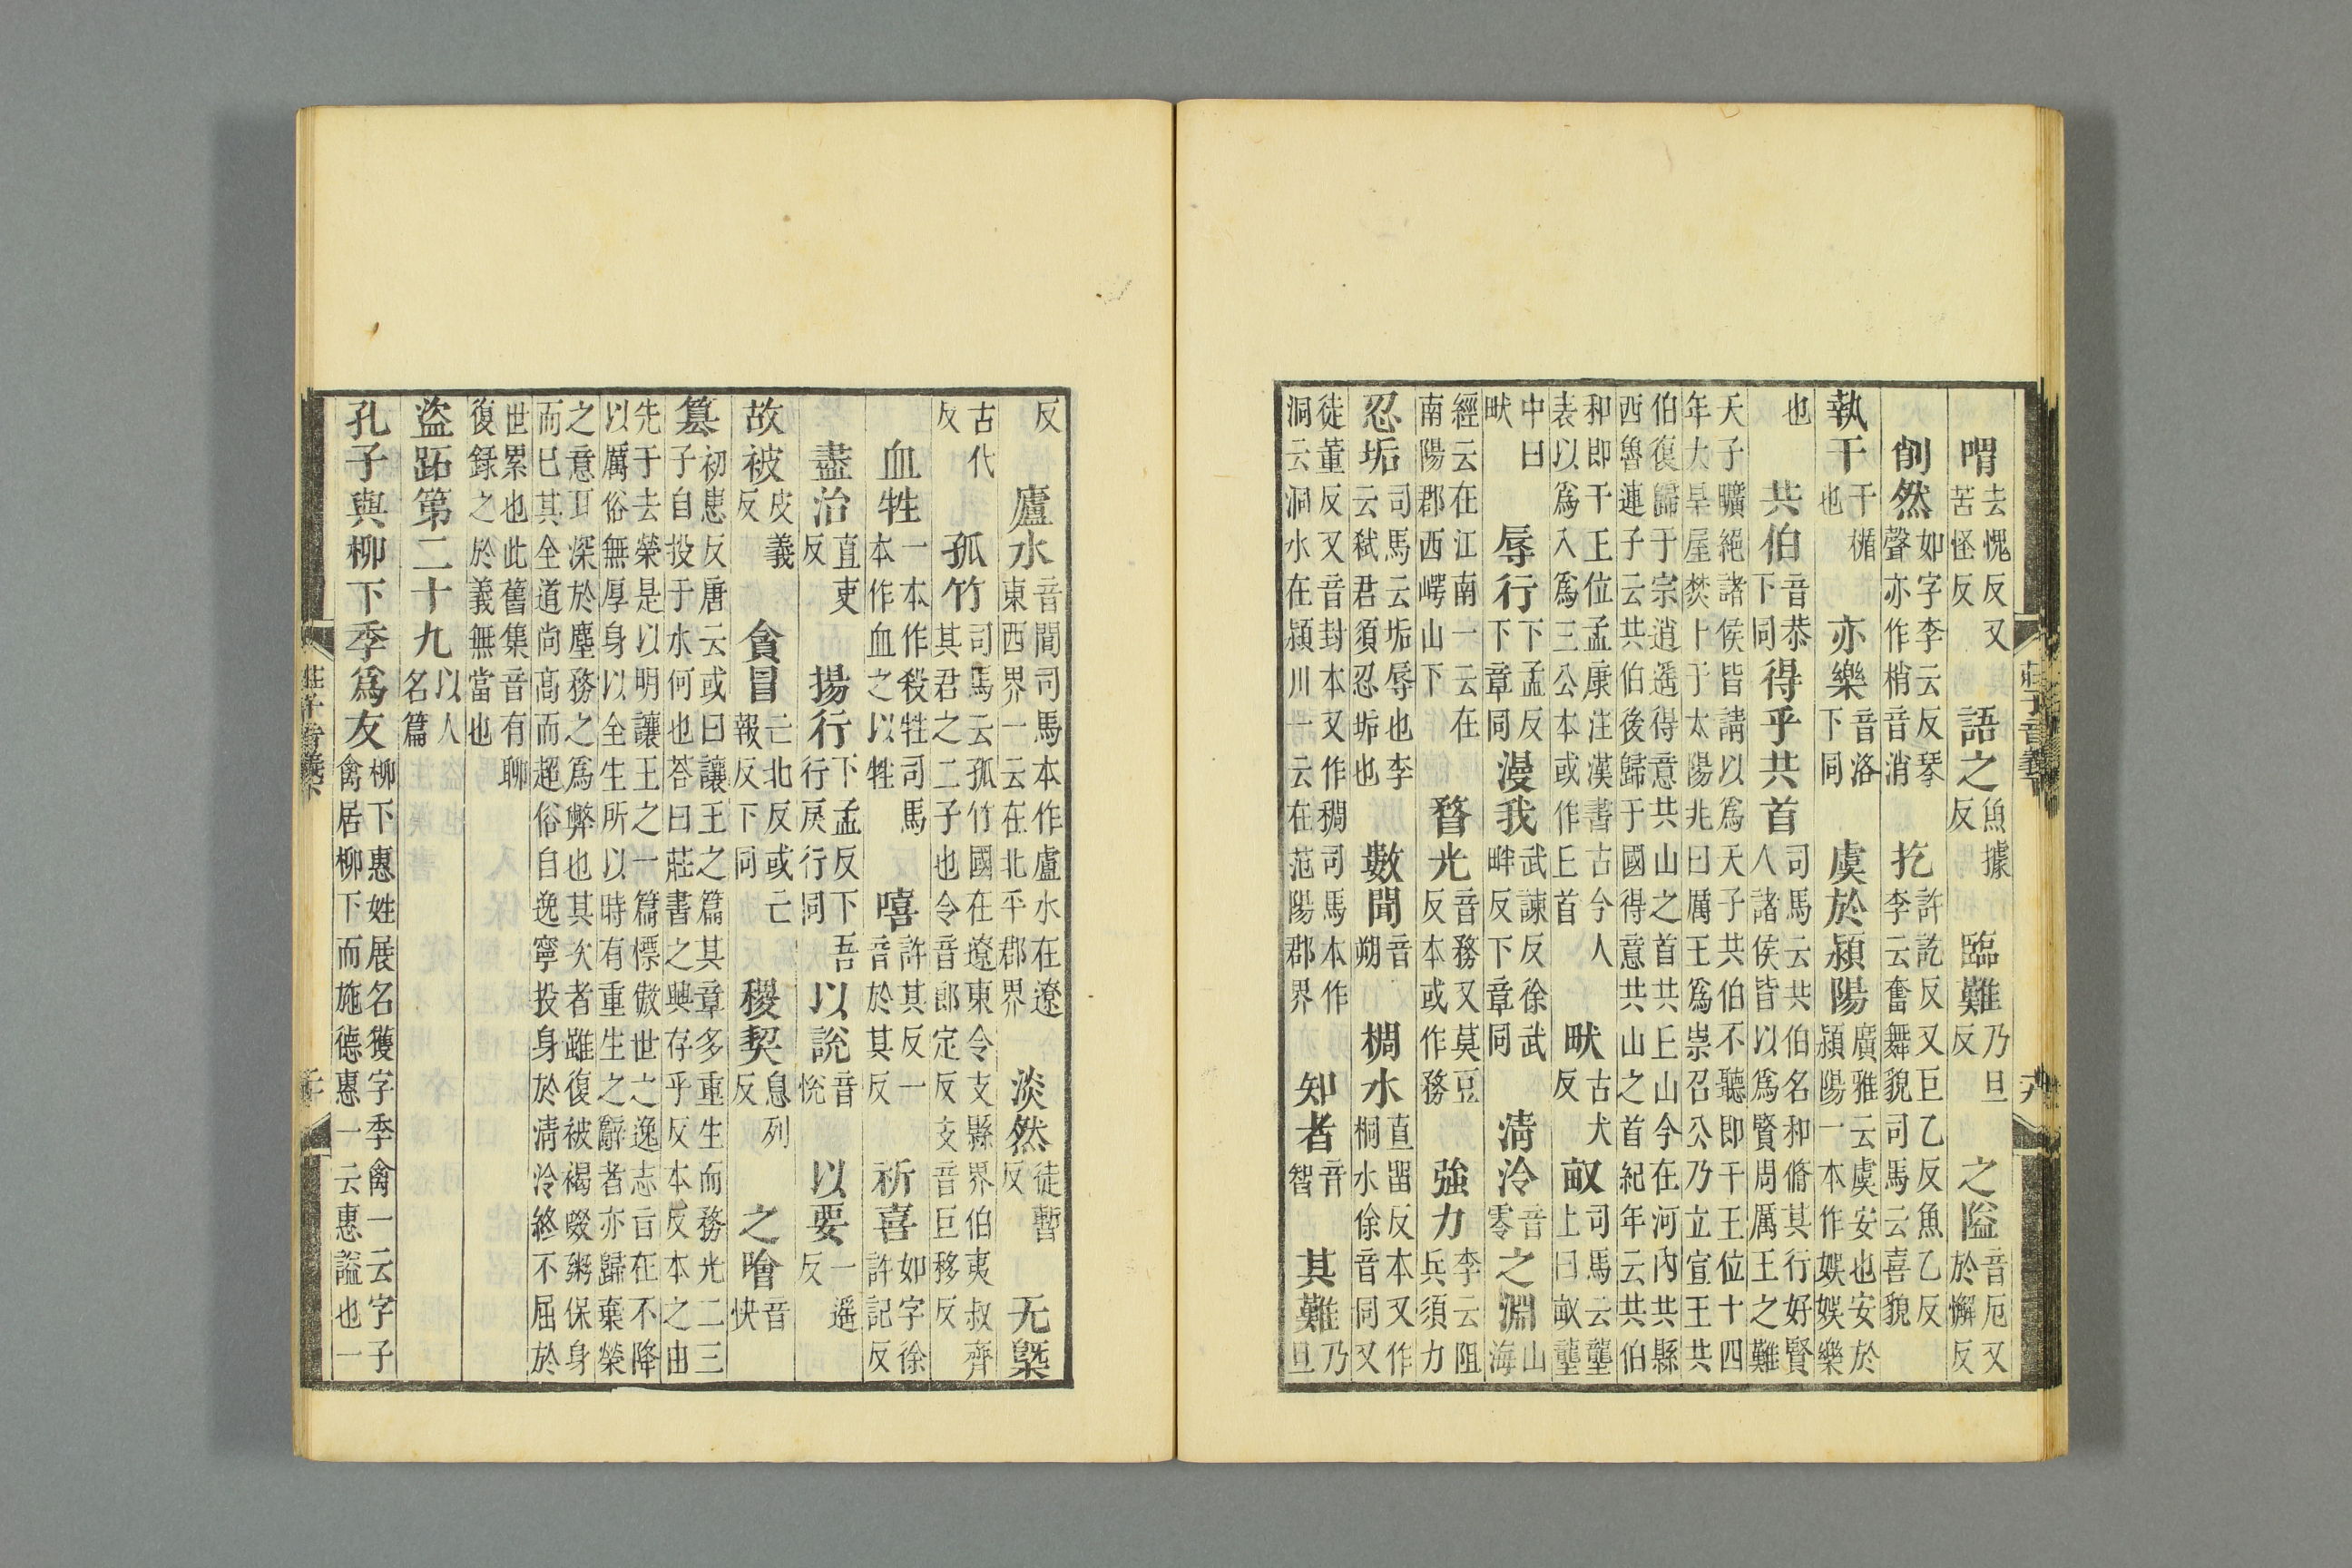 喟去愧反又苦怪反 語之魚據反 臨難乃旦反 之隘音厄又於懈反
削然如字李云反琴聲亦作梢音消 扢許訖反又巨乙反魚乙反李云奮舞貌司馬云喜貌
執干干楯也 亦樂音洛下同 虞於潁陽廣雅云虞安也安於潁陽一本作娛娛樂
也 共伯音恭下同 得乎共首司馬云共伯名和脩其行好賢人諸侯皆以爲賢周厲王之難
天子曠絕諸侯皆請以爲天子共伯不聽即干王位十四年大旱屋焚卜于太陽兆曰厲王爲祟召公乃立宣王共
伯復歸于宗逍遥得意共山之首共丘山今在河內共縣西魯連子云共伯後歸于國得意共山之首紀年云共伯
和即干王位孟康注漢書古今人表以爲入爲三公本或作丘首 畎古犬反 畝司馬云壟上曰畝壟
中曰畎 辱行下孟反下章同 漫我武諫反徐武畔反下章同 清泠音零 之淵山海
經云在江南一云在南陽郡西崿山下 瞀光音務又莫豆反本或作務 強力李云阻兵須力
忍垢司馬云垢辱也李云弒君須忍垢也 數聞音朔 椆水直留反本又作桐水徐音同又
徒董反又音封本又作稠司馬本作洞云洞水在潁川一云在范陽郡界 知者音智 其難乃旦
反 廬水音閭司馬本作盧水在遼東西界一云在北平郡界 淡然徒暫反 无槩
古代反 孤竹司馬云孤竹國在遼東令支縣界伯夷叔齊其君之二子也令音郎定反支音巨移反
血牲一本作殺牲司馬本作血之以牲 嘻許其反一音於其反 祈喜如字徐許記反
盡治直吏反 揚行下孟反下吾行戾行同 以說音悅 以要一遥反
故被皮義反 貪冒亡北反或亡報反下同 稷契息列反 之噲音快
篡初患反唐云或曰讓王之篇其章多重生而務光二三子自投于水何也荅曰莊書之興存乎反本反本之由
先于去榮是以明讓王之一篇標傲世之逸志㫖在不降以厲俗無厚身以全生所以時有重生之辭者亦歸棄榮
之意耳深於塵務之爲弊也其次者雖復被褐啜粥保身而已其全道尚高而超俗自逸寧投身於清泠終不屈於
世累也此舊集音有聊復録之於義無當也
盜跖第二十九以人名篇
孔子與柳下季爲友柳下惠姓展名獲字季禽一云字子禽居柳下而施德惠一云惠謚也一
莊子音義下